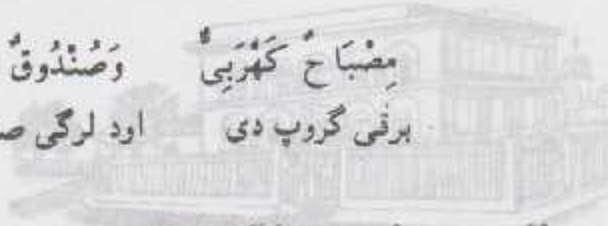 مِصْبَاحٌ كَهْرَبِيٌّ وَصُنْدُوقٌ
برقی گروپ دی اود لرگی